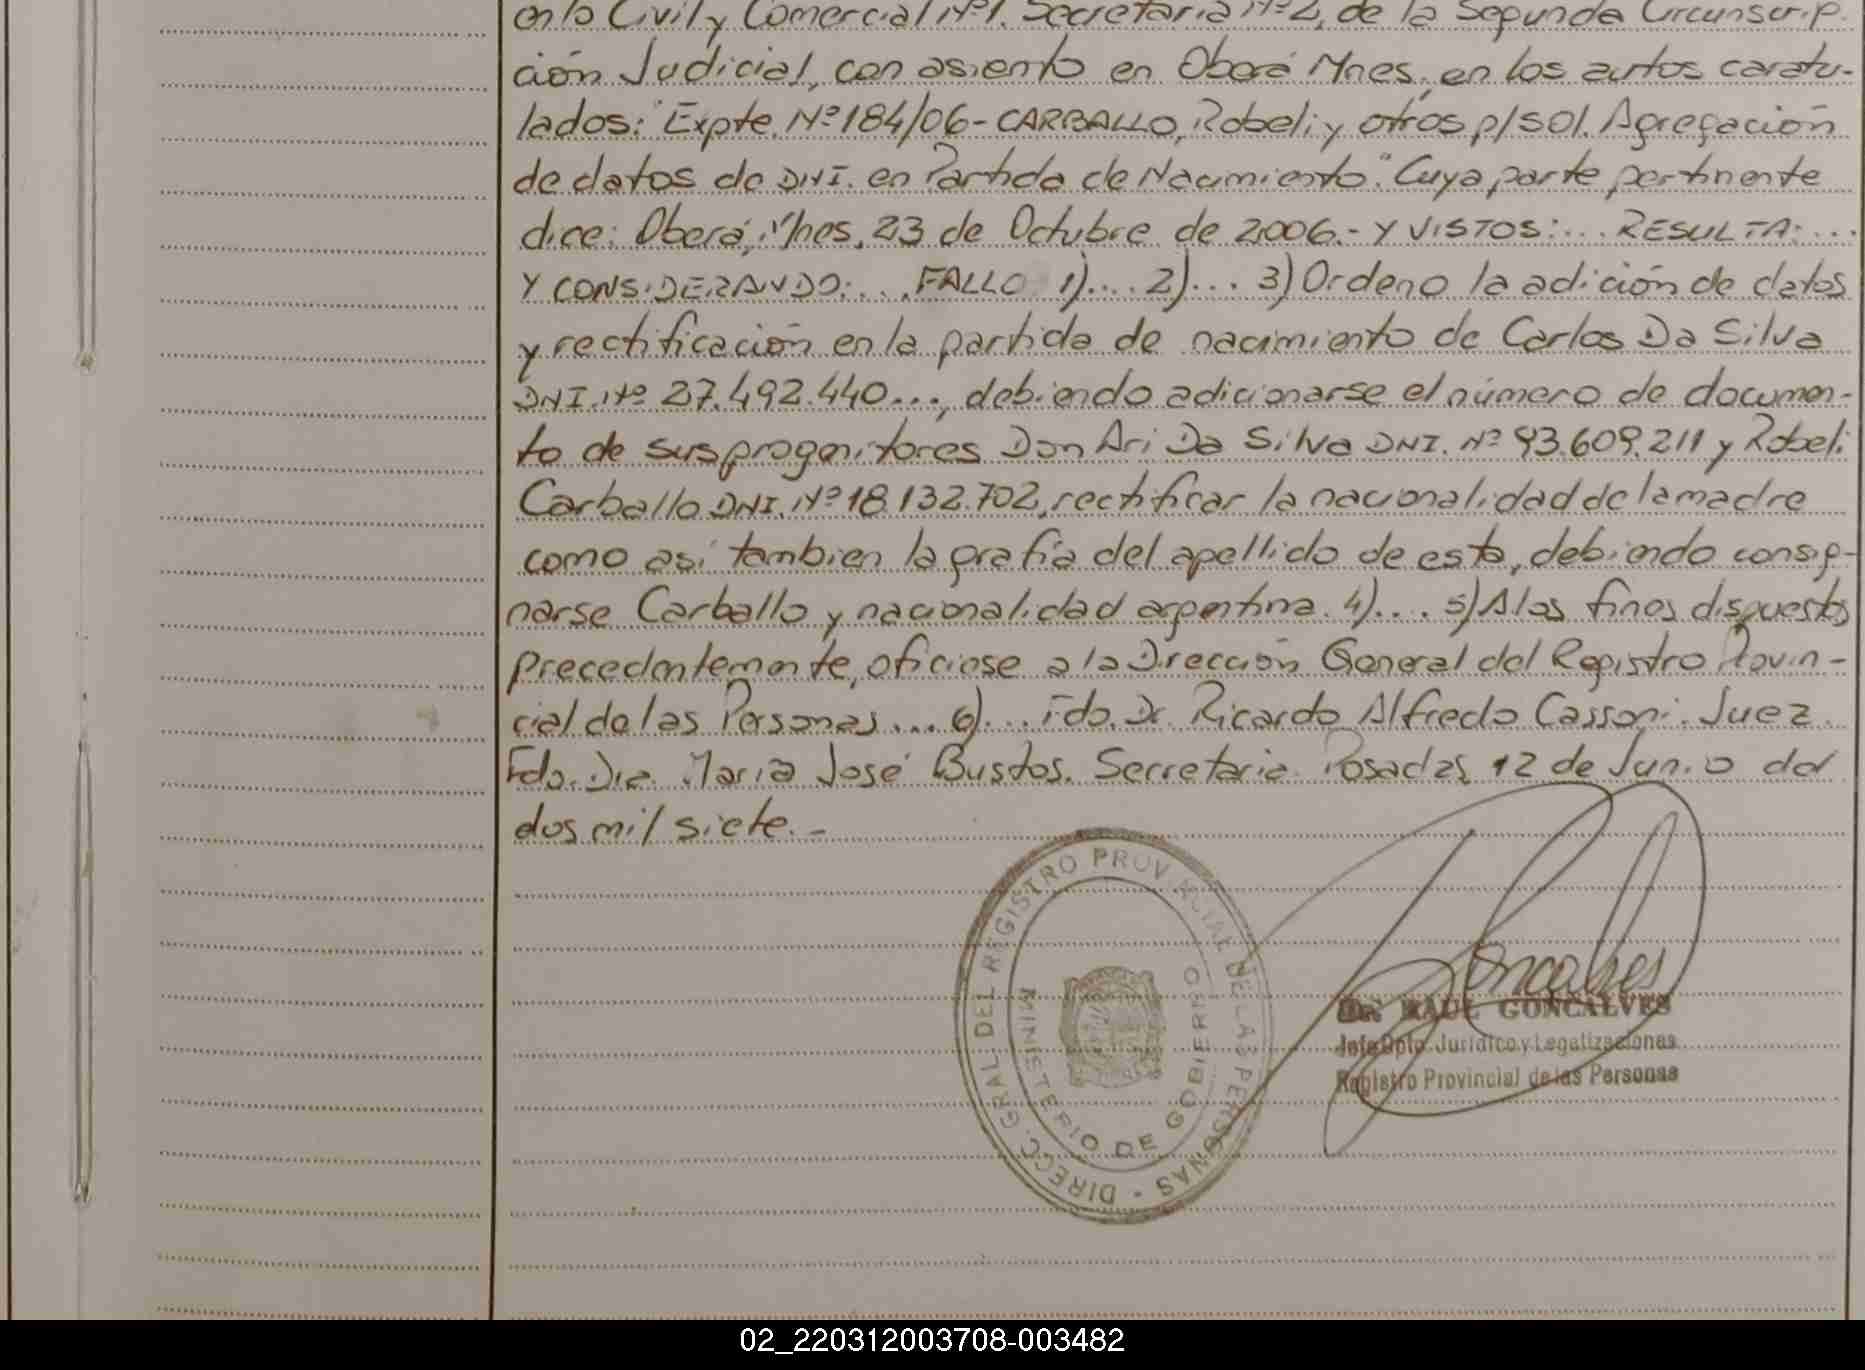 en lo Civil y Comercial Nº1. Secretaria Nº2, de la Segunda Circunscrip-
ción Judicial, con asiento en Oberá Mnes, en los autos caratu-
lados: "Expte. Nº184/06-CARBALLO, Robeli y otros p/sol. Agregación
de datos de DNI. en Partida de Nacimiento". Cuya parte pertinente
dice: Oberá, Mnes, 23 de Octubre de 2006.- Y VISTOS:... RESULTA:...
Y CONSIDERANDO:... FALLO 1)... 2)... 3) Ordeno la adición de datos
y rectificación en la partida de nacimiento de Carlos Da Silva
DNI. Nº 27.492.440..., debiendo adicionarse el número de documen-
to de sus progenitores Don Ari Da Silva DNI. Nº 93.609.211 y Robeli
Carballo DNI. Nº18.132.702, rectificar la nacionalidad de la madre
como así tambien la grafía del apellido de esta, debiendo consig-
narse Carballo y nacionalidad argentina. 4)... 5) A los fines dispuestos
precedentemente, ofíciese a la Dirección General del Registro Provin-
cial de las Personas... 6)... Fdo. Dr. Ricardo Alfredo Cassoni. Juez.
Fdo. Dra. María José Bustos. Secretaria. Posadas, 12 de Junio del
dos mil siete.-
DIRECC. GRAL. DEL REGISTRO PROVINCIAL DE LAS PERSONAS
MINISTERIO DE GOBIERNO
Goncalves
Dr. RAUL GONCALVES
Jefe Dpto. Jurídico y Legalizaciones
Registro Provincial de las Personas
02_220312003708-003482